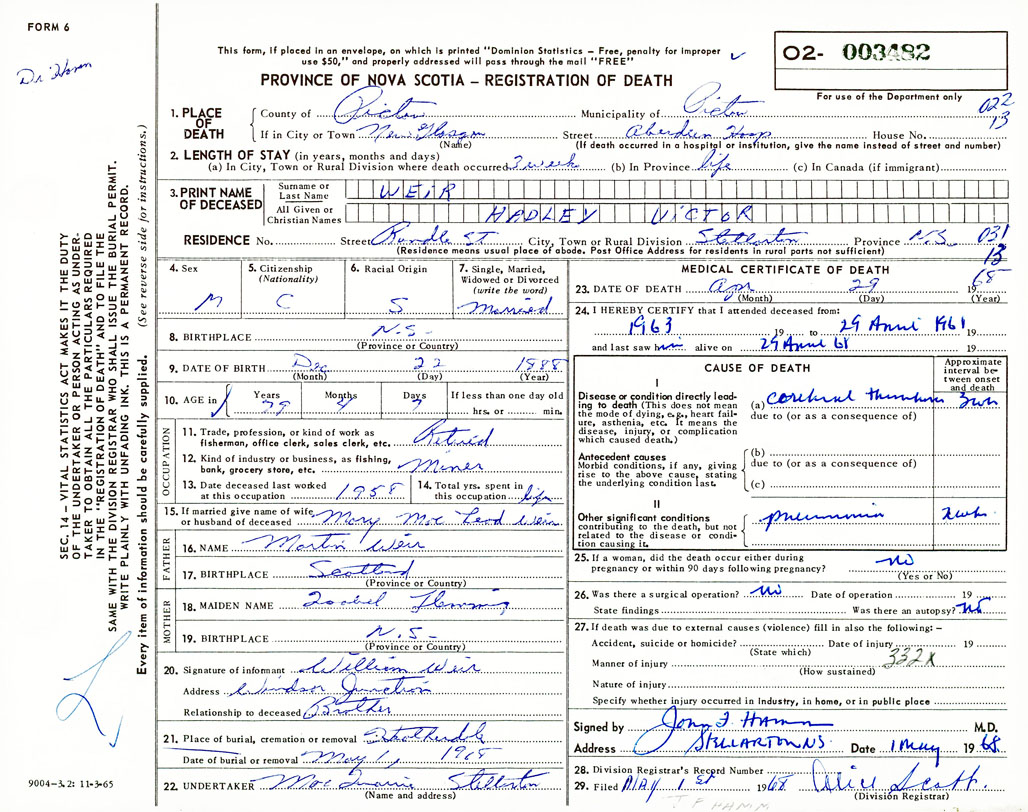 FORM 6
This form, if placed in an envelope, on which is printed "Dominion Statistics – Free, penalty for improper
use $50," and properly addressed will pass through the mail "FREE"
PROVINCE OF NOVA SCOTIA – REGISTRATION OF DEATH
O2- 003482
For use of the Department only
022
13
1. PLACE OF DEATH
County of Pictou Municipality of Pictou
If in City or Town New Glasgow Street Aberdeen Hosp House No.
(Name) (If death occurred in a hospital or institution, give the name instead of street and number)
2. LENGTH OF STAY (in years, months and days)
(a) In City, Town or Rural Division where death occurred 3 week (b) In Province life (c) In Canada (if immigrant)
3. PRINT NAME OF DECEASED
Surname or Last Name WEIR
All Given or Christian Names HADLEY VICTOR
RESIDENCE No. Street St City, Town or Rural Division Stellarton Province N.S. 031
(Residence means usual place of abode. Post Office Address for residents in rural parts not sufficient) 13
4. Sex M
5. Citizenship (Nationality) C
6. Racial Origin S
7. Single, Married, Widowed or Divorced (write the word) Married
8. BIRTHPLACE N.S-
(Province or Country)
9. DATE OF BIRTH Dec 22 1888
(Month) (Day) (Year)
10. AGE in Years 79 Months 4 Days 7 If less than one day old
hrs. or min.
OCCUPATION
11. Trade, profession, or kind of work as
fisherman, office clerk, sales clerk, etc. Retired
12. Kind of industry or business, as fishing,
bank, grocery store, etc. Miner
13. Date deceased last worked
at this occupation 1958
14. Total yrs. spent in
this occupation life
15. If married give name of wife,
or husband of deceased Mary Mac Leod Weir
FATHER
16. NAME Martin Weir
17. BIRTHPLACE Scotland
(Province or Country)
MOTHER
18. MAIDEN NAME Isobel Flemming
19. BIRTHPLACE N.S-
(Province or Country)
20. Signature of informant William Weir
Address Windsor Junction
Relationship to deceased Brother
21. Place of burial, cremation or removal
Date of burial or removal May 1, 1968
22. UNDERTAKER Stellarton
(Name and address)
MEDICAL CERTIFICATE OF DEATH
23. DATE OF DEATH Apr 29 1968
(Month) (Day) (Year)
24. I HEREBY CERTIFY that I attended deceased from:
1963 19 to 29 April 1968
and last saw him alive on 29 April 68 19
CAUSE OF DEATH
Approximate interval between onset and death
I
Disease or condition directly leading to death (This does not mean
the mode of dying, e.g., heart failure, asthenia, etc. It means the
disease, injury, or complication
which caused death.)
(a) cerebral thrombosis 3 wk
due to (or as a consequence of)
Antecedent causes
Morbid conditions, if any, giving
rise to the above cause, stating
the underlying condition last.
(b)
due to (or as a consequence of)
(c)
II
Other significant conditions
contributing to the death, but not
related to the disease or condition causing it.
pneumonia 2 wk.
25. If a woman, did the death occur either during
pregnancy or within 90 days following pregnancy? no
(Yes or No)
26. Was there a surgical operation? no Date of operation 19
State findings Was there an autopsy? no
27. If death was due to external causes (violence) fill in also the following: –
Accident, suicide or homicide? Date of injury 19
(State which)
Manner of injury 332X
(How sustained)
Nature of injury
Specify whether injury occurred in Industry, in home, or in public place
Signed by John F. HAMM M.D.
Address STELLARTON NS Date 1 May 1968.
28. Division Registrar's Record Number
29. Filed MAY 1st 1968 Alice Scott
(Division Registrar)
J F HAMM
Dr. Hamm
SEC. 14 – VITAL STATISTICS ACT MAKES IT THE DUTY
OF THE UNDERTAKER OR PERSON ACTING AS UNDER-
TAKER TO OBTAIN ALL THE PARTICULARS REQUIRED
IN THE "REGISTRATION OF DEATH" AND TO FILE THE
SAME WITH THE DIVISION REGISTRAR WHO SHALL ISSUE THE BURIAL PERMIT.
WRITE PLAINLY WITH UNFADING INK. THIS IS A PERMANENT RECORD.
Every item of information should be carefully supplied. (See reverse side for instructions.)
9004-3.2: 11-3-65